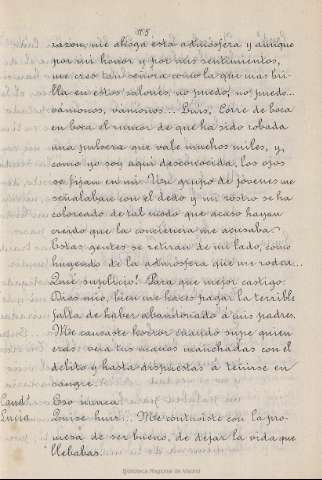 razon, me ahoga esta atmósfera y aunque
por mi honor y por mis sentimientos,
me creo tan señora como la que mas bri-
lla en estos salones, no puedo, no puedo...
vámonos, vámonos... Luis, Corre de boca
en boca el rumor de que ha sido robada
una pulsera que vale muchos miles, y,
como yo soy aqui desconocida, los ojos
se fijan en mí. Un grupo de jóvenes me
señalaban con el dedo y mi rostro se ha
coloreado de tal modo que acaso hayan
creido que la conciencia me acusaba.
Estas gentes se retiran de mi lado, como
huyendo de la atmósfera que me rodea...
¡Qué suplicio! ¿Para que mejor castigo?
Dios mio, bien me haces pagar la terrible
falta de haber abandonado á mis padres.
Me causaste horror cuando supe quien
eras; vera tus manos manchadas con el
delito y hasta dispuestas á teñirse en
sangre.
Cand.º Eso nunca.
Luisa Quise huir... Me contuviste con la pro-
mesa de ser bueno, de dejar la vida que
llebabas.
Biblioteca Regional de Madrid